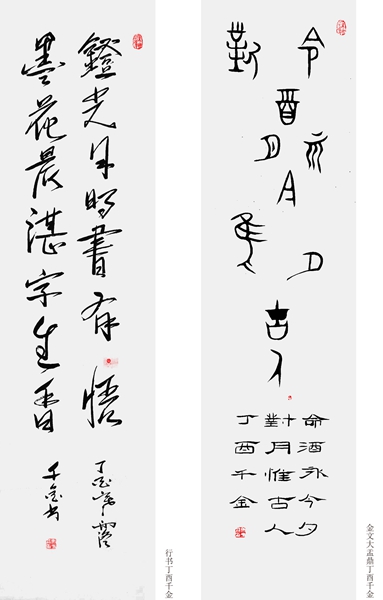 鐙光月明書有悟
墨花晨湛字生香
丁酉年
千金书
行书丁酉千金
令酉永今夕
對月隹古人
命酒永今夕
對月惟古人
丁酉千金
金文大盂鼎丁酉千金